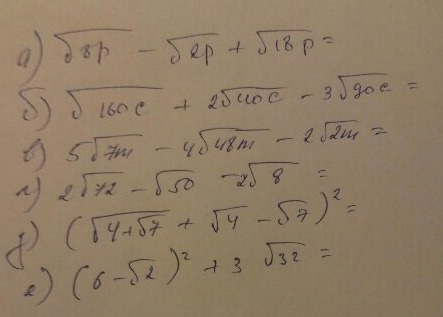 а) √8p − √2p + √18p =
б) √160c + 2√40c − 3√90c =
в) 5√7m − 4√48m − 2√2m =
г) 2√72 − √50 − 2√8 =
д) (√4+√7 + √4 − √7)² =
е) (6 − √2)² + 3 √32 =